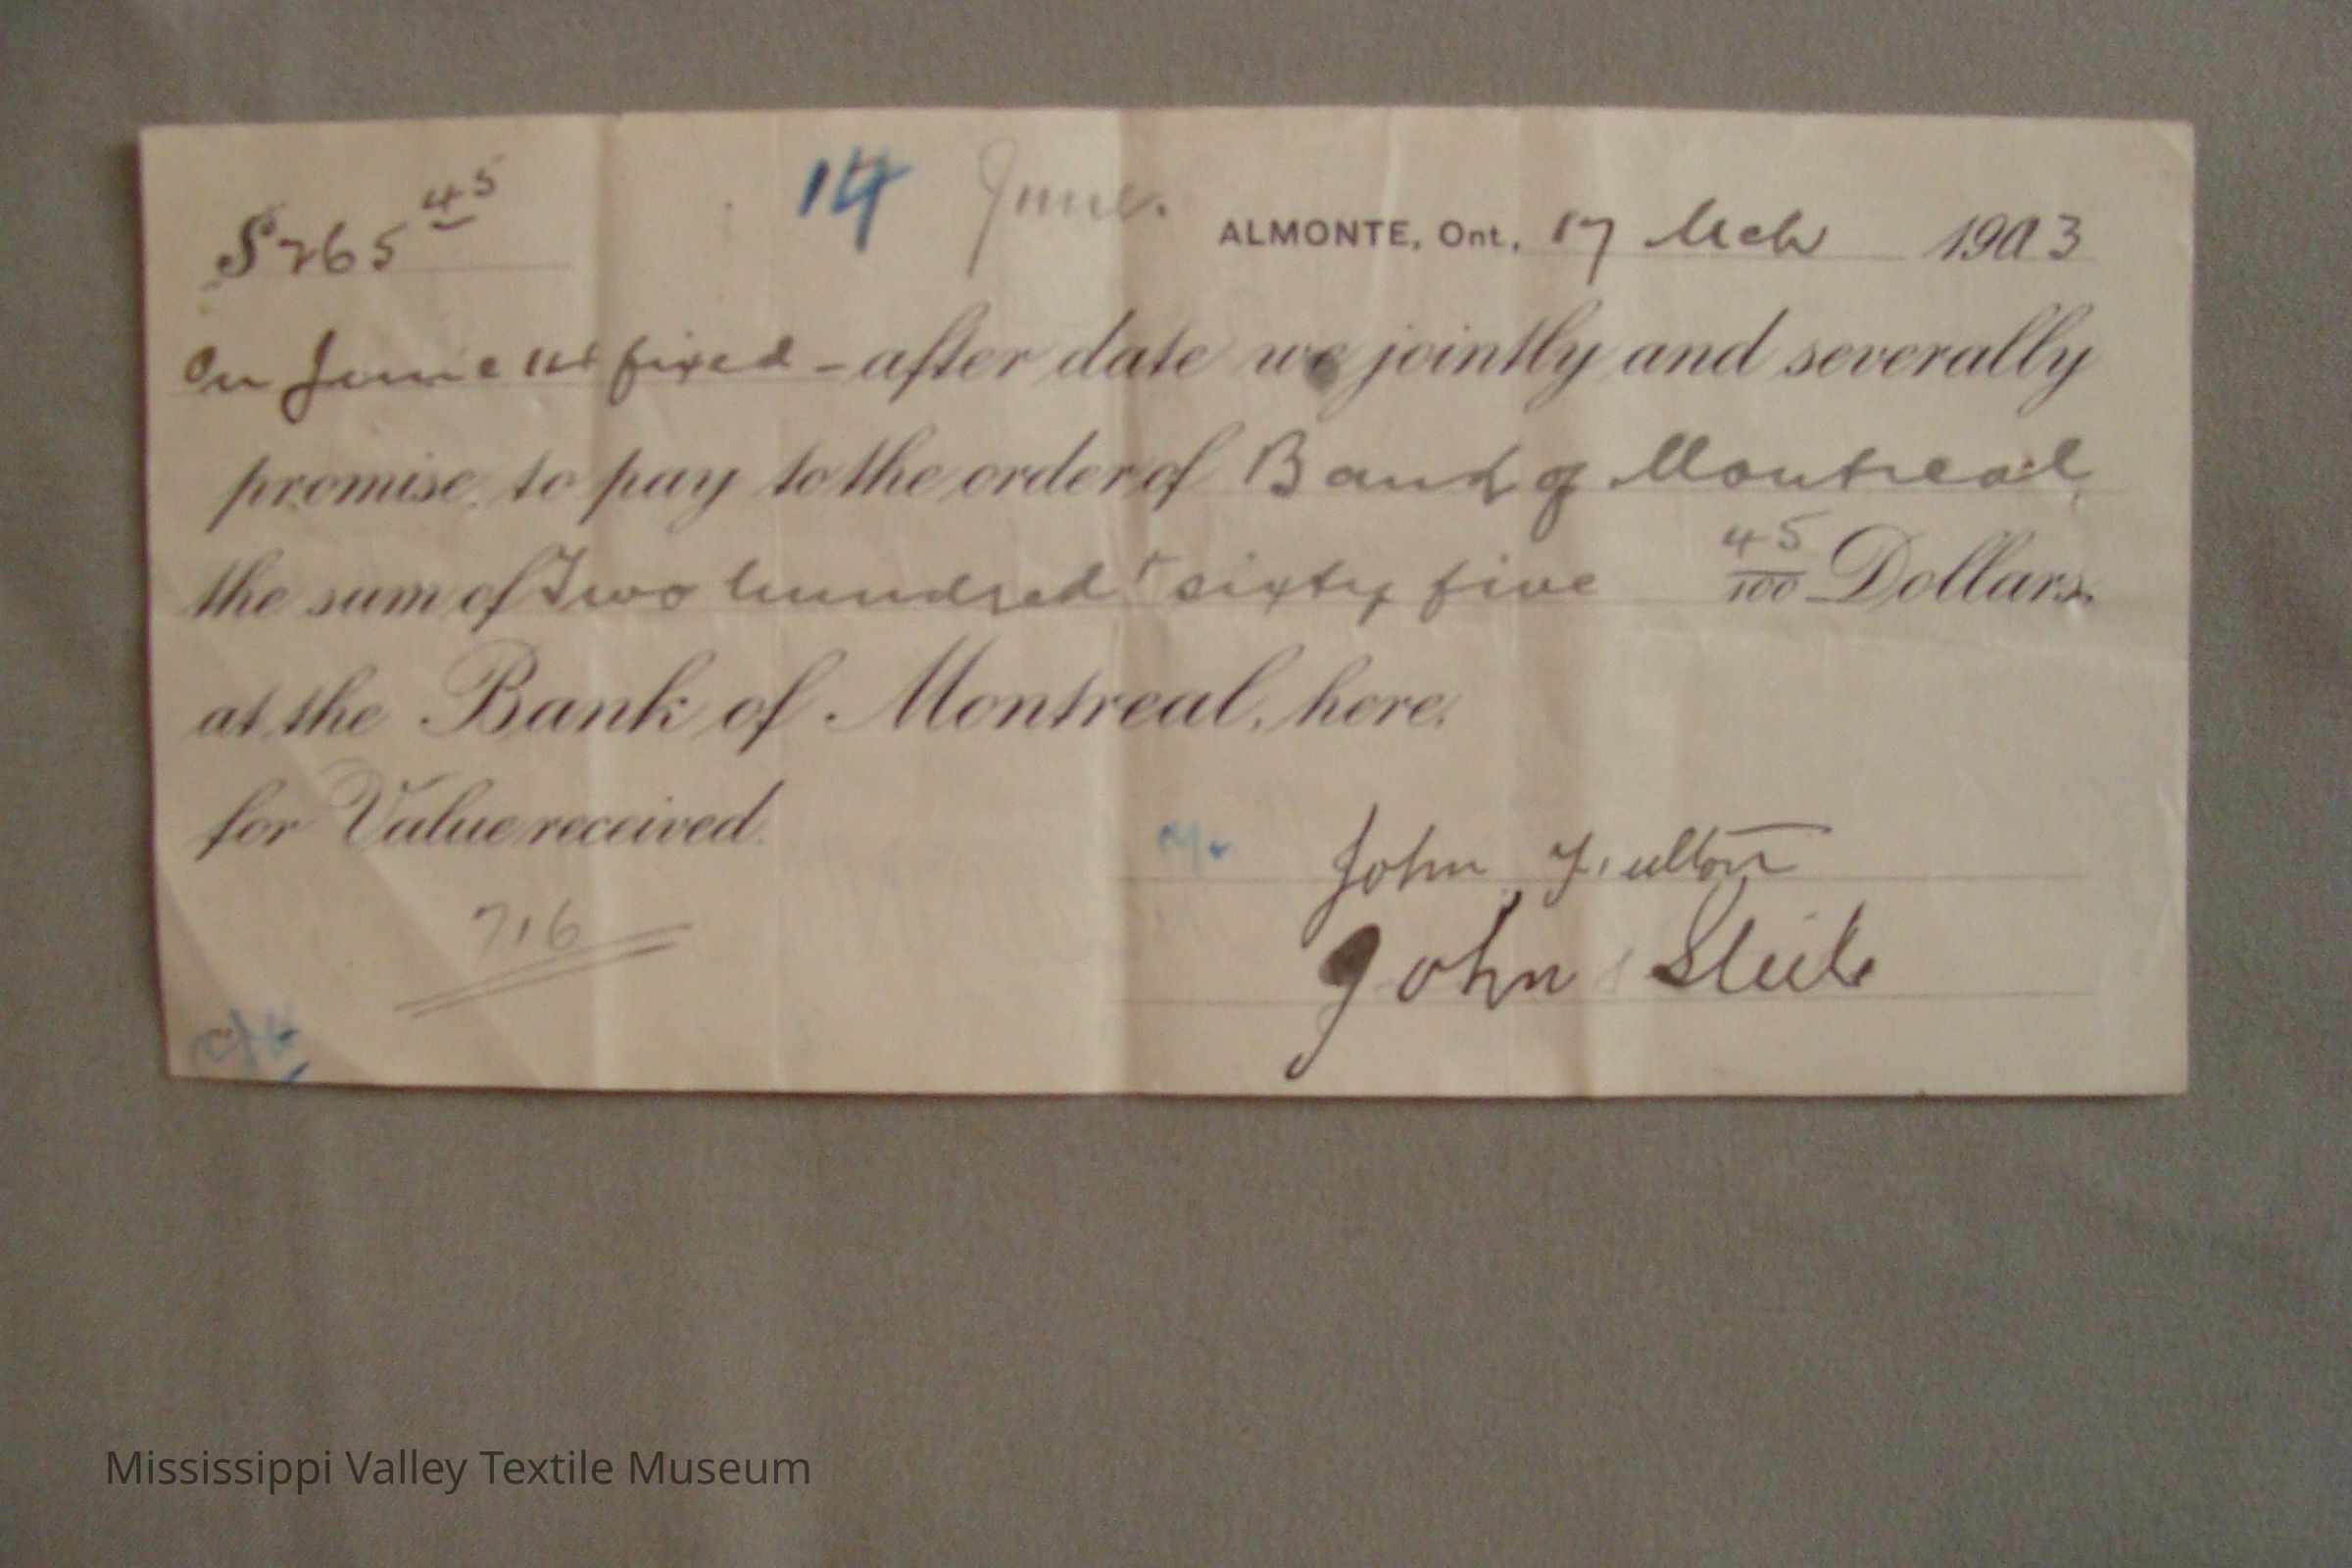 $265 45
14 June.
ALMONTE, Ont., 17 Mch 1903
On June fixed - after date we jointly and severally
promise to pay to the order of Bank of Montreal
the sum of Two hundred + sixty five 45/100 Dollars.
at the Bank of Montreal, here.
for Value received.
John Fulton
716
John
Mississippi Valley Textile Museum